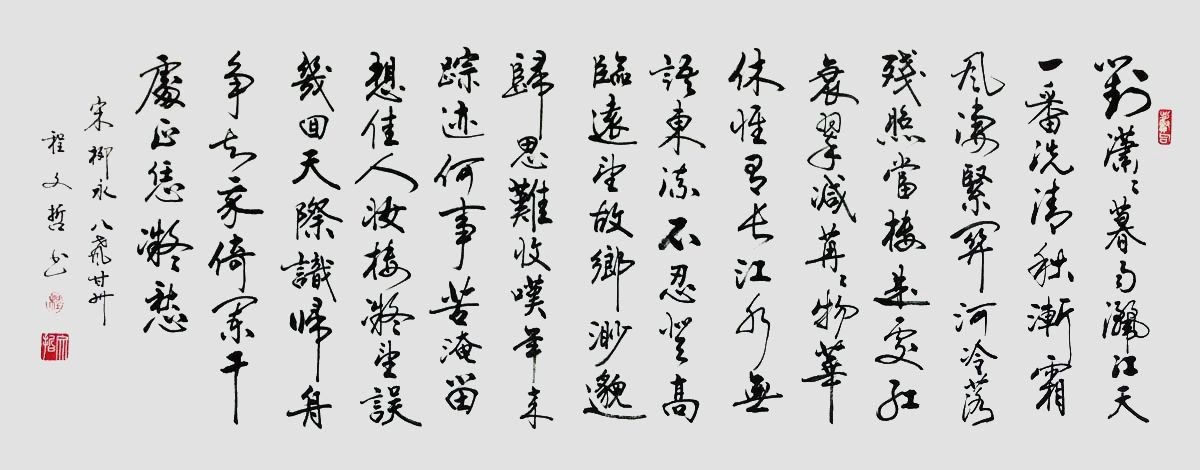 對瀟々暮雨灑江天
一番洗清秋漸霜
風凄緊關河冷落
殘照當樓是處紅
衰翠減苒々物華
休惟有長江水無
語東流不忍登高
臨遠望故鄉渺邈
歸思難收嘆年來
踪迹何事苦淹留
想佳人妝樓凝望誤
幾回天際識歸舟
爭知我倚闌干
處正恁凝愁
宋柳永八聲甘州
程文哲书